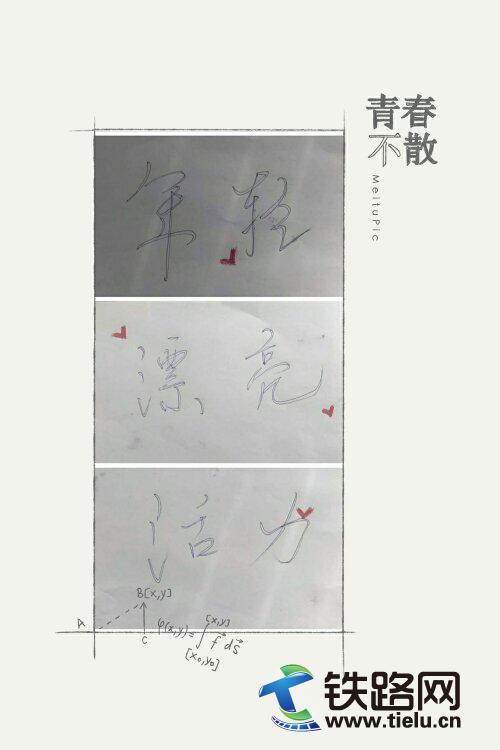 青春
不散
MeituPic
年轻
漂亮
活力
B[x,y]
A
C
φ(x,y)=∫[x₀,y₀][x,y] f⃗ ds⃗
铁路网
www.tielu.cn